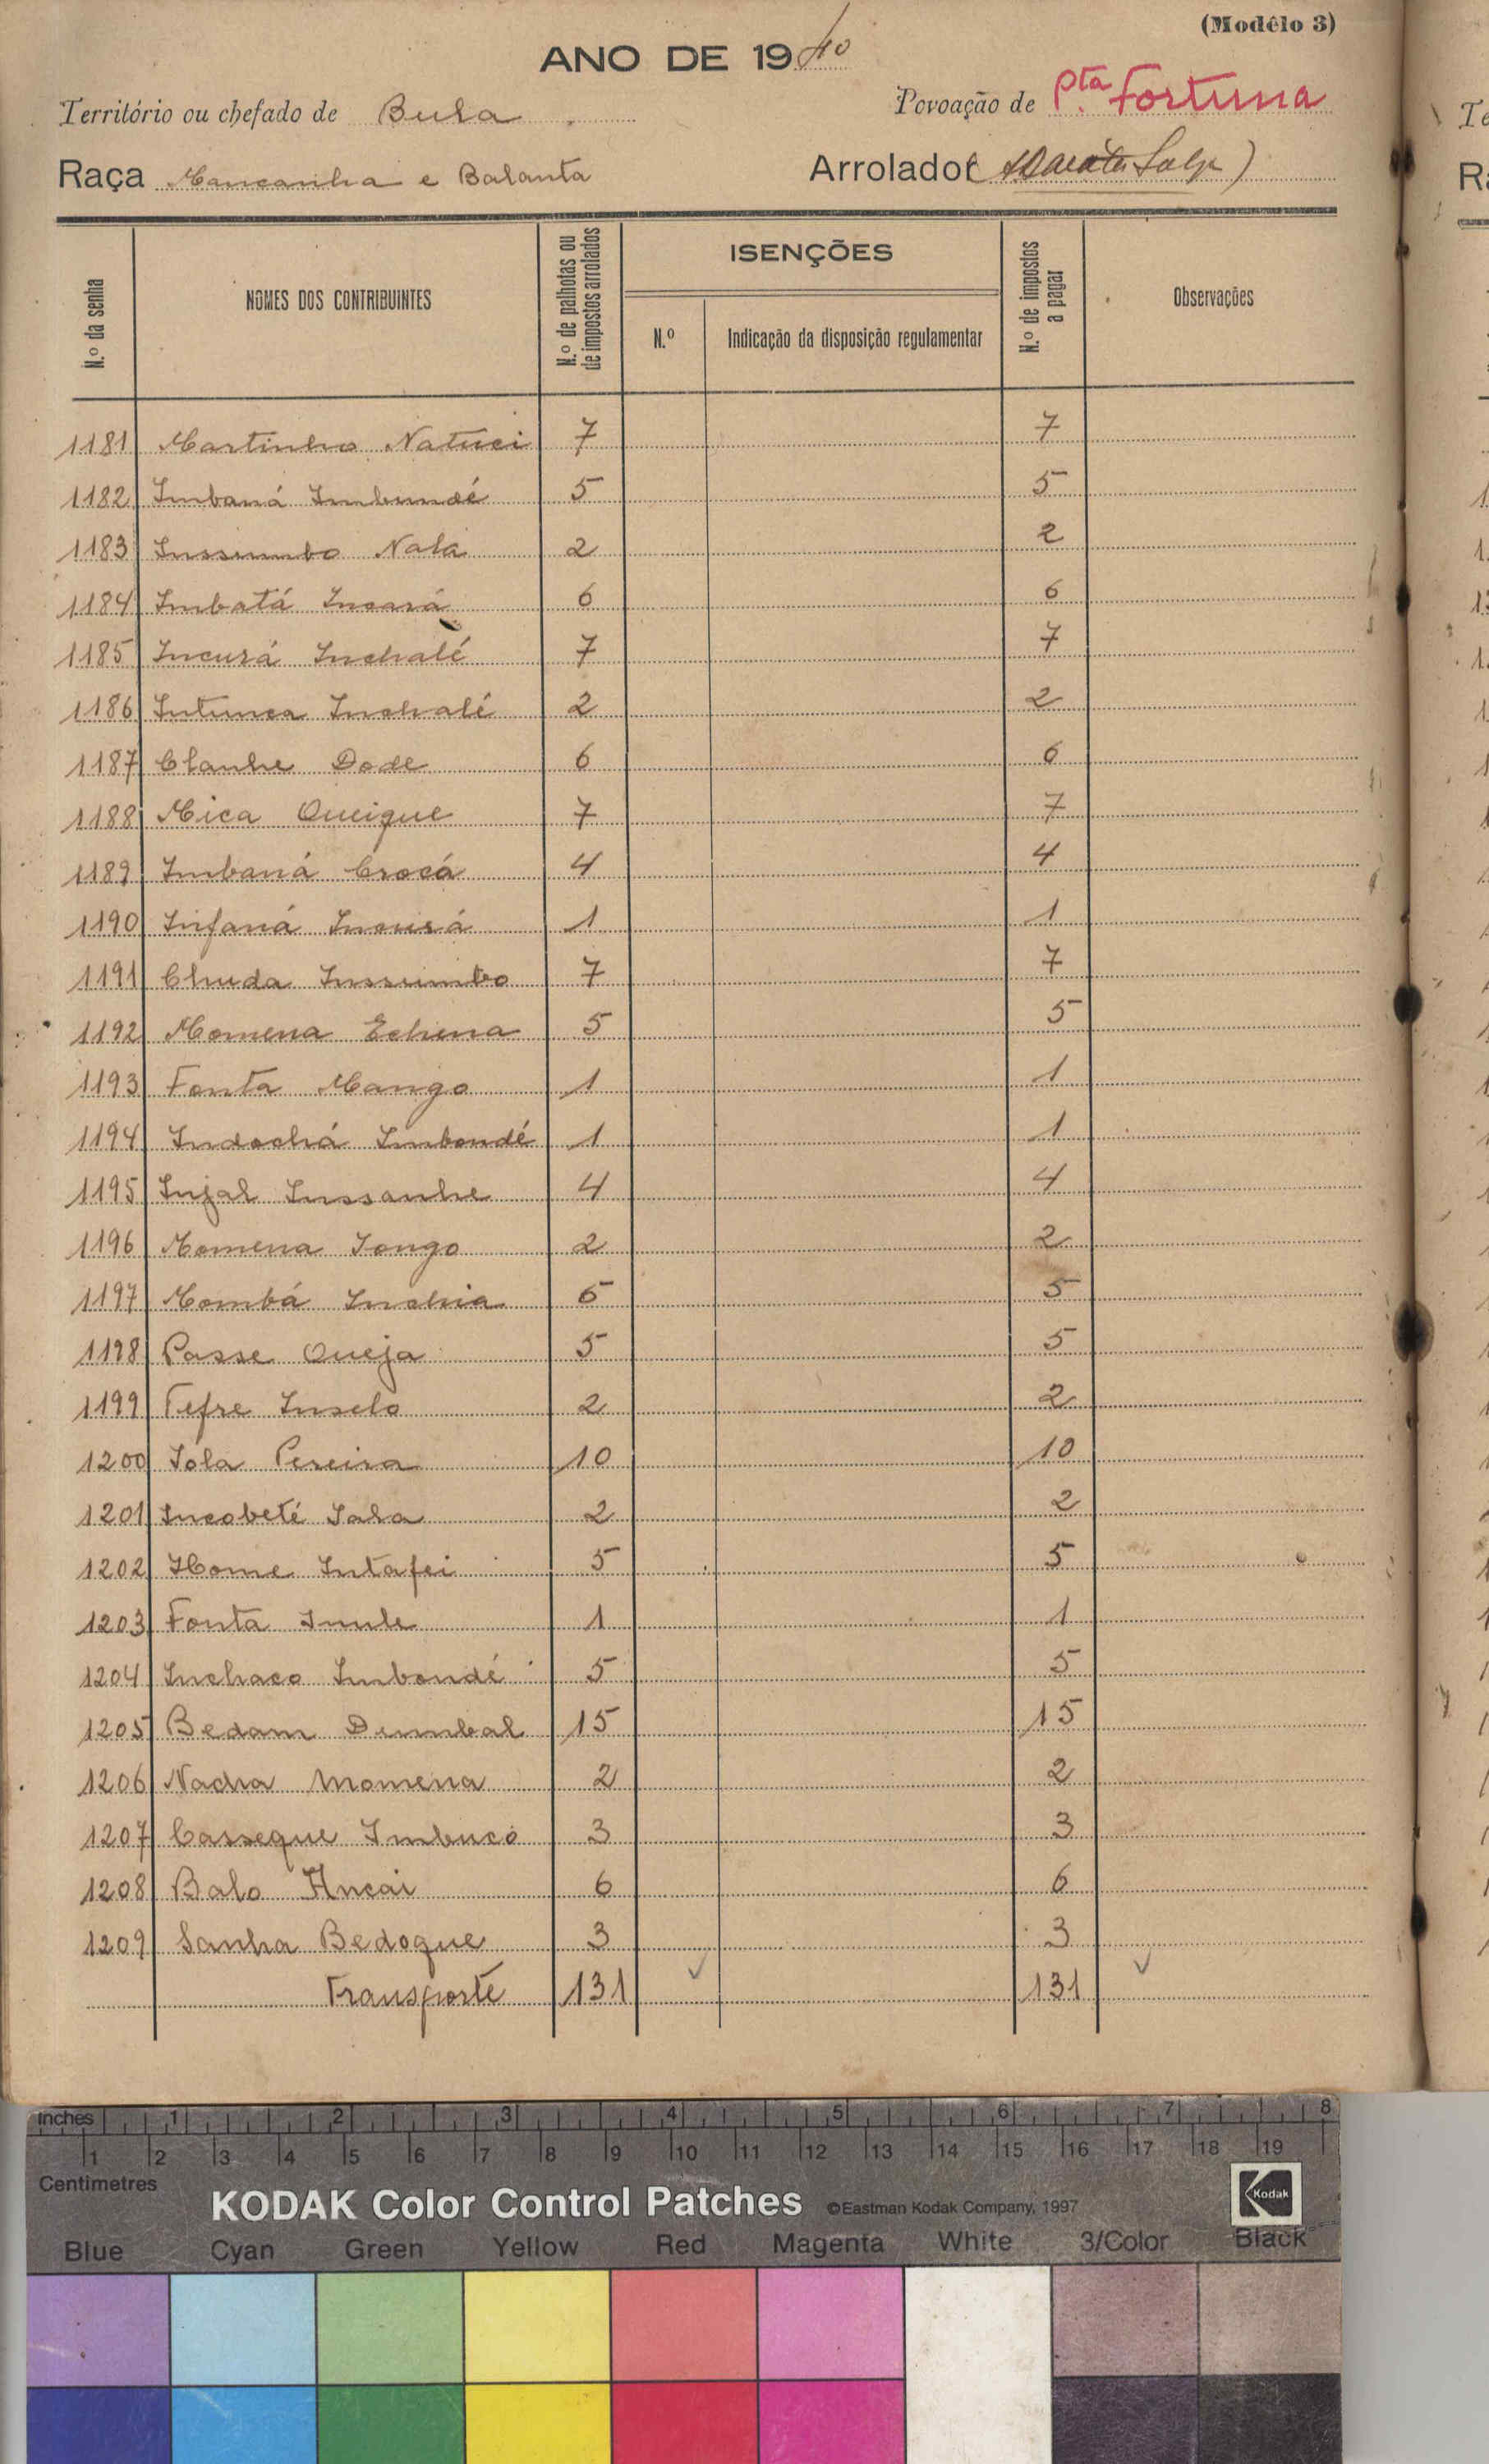 (Modêlo 3)
ANO DE 1940
Território ou chefado de Bula
Povoação de Pta. Fortuna
Raça Mancanha e Balanta
Arrolador
N.º da senha
NOMES DOS CONTRIBUINTES
N.º de palhotas ou de impostos arrolados
ISENÇÕES
N.º
Indicação da disposição regulamentar
N.º de impostos a pagar
Observações
1181 Martinho Natuci 7 7
1182 Imbaná Imbundé 5 5
1183 Inssumbo Nala 2 2
1184 Imbatá Incará 6 6
1185 Incurá Inchalé 7 7
1186 Intunca Inchalé 2 2
1187 Clanhe Dode 6 6
1188 Mica Queique 7 7
1189 Imbaná Crocá 4 4
1190 Infaná Incurá 1 1
1191 Chuda Inssumbo 7 7
1192 Momena Echena 5 5
1193 Fonta Mango 1 1
1194 Indochá Imbondé 1 1
1195 Injal Inssanhe 4 4
1196 Momena Iongo 2 2
1197 Mombá Inchia 5 5
1198 Passe Queja 5 5
1199 Tefre Inselo 2 2
1200 Ióla Pereira 10 10
1201 Incobeté Sala 2 2
1202 Home Intafei 5 5
1203 Fonta Imule 1 1
1204 Inchaco Imbondé 5 5
1205 Bedam Dumbal 15 15
1206 Nadna Momena 2 2
1207 Casseque Imbucó 3 3
1208 Balo Ancai 6 6
1209 Sanha Bedoque 3 3
Transporte 131 131
inches 1 2 3 4 5 6 7 8
1 2 3 4 5 6 7 8 9 10 11 12 13 14 15 16 17 18 19
Centimetres
KODAK Color Control Patches ©Eastman Kodak Company, 1997 Kodak
Blue Cyan Green Yellow Red Magenta White 3/Color Black